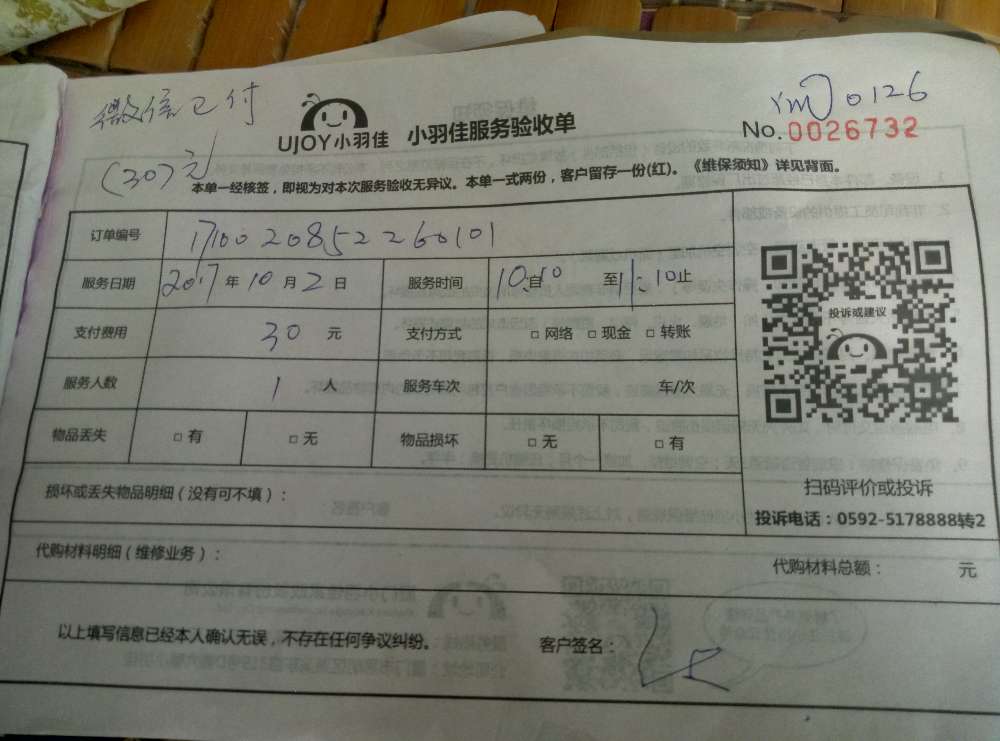 微信已付
(30)元
UJOY小羽佳 小羽佳服务验收单
0126
No.0026732
本单一经核签，即视为对本次服务验收无异议。本单一式两份，客户留存一份(红)。《维保须知》详见背面。
订单编号 17100208522260101
服务日期 2017年10月2日 服务时间 10:10自 至11:10止
支付费用 30 元 支付方式 □ 网络 □ 现金 □ 转账
服务人数 1 人 服务车次 车/次
物品丢失 □ 有 □ 无 物品损坏 □ 无 □ 有
投诉或建议
扫码评价或投诉
投诉电话：0592-5178888转2
损坏或丢失物品明细（没有可不填）：
代购材料明细（维修业务）： 代购材料总额： 元
以上填写信息已经本人确认无误，不存在任何争议纠纷。 客户签名：